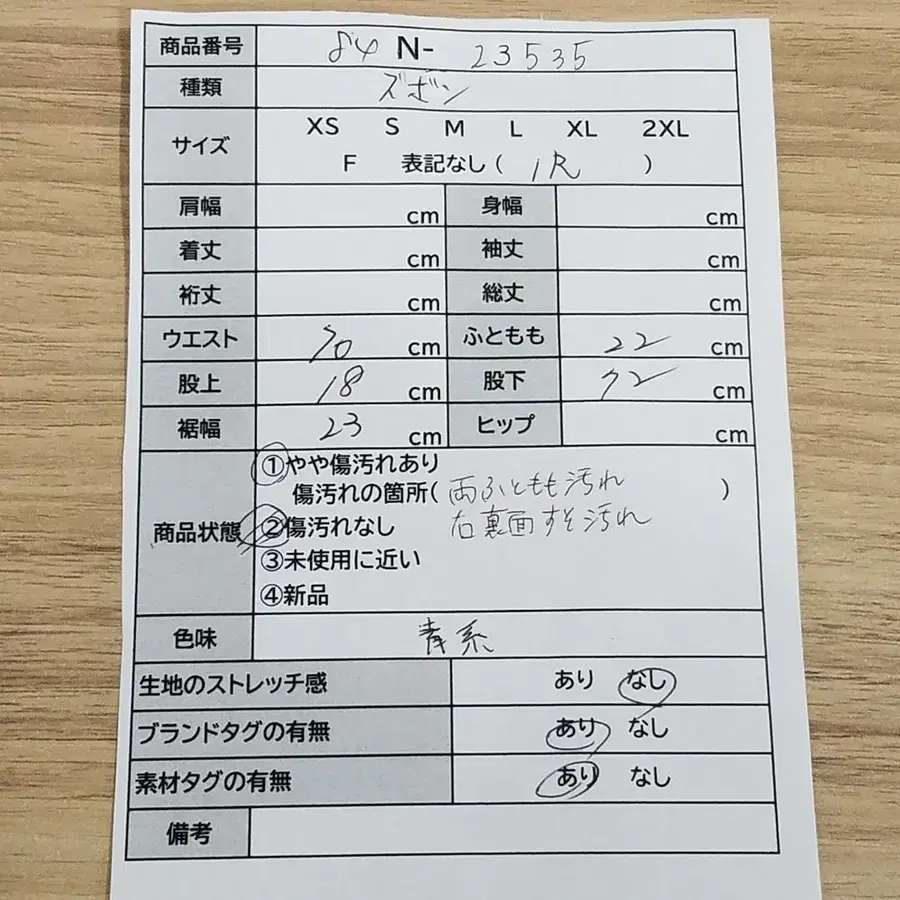 商品番号 84 N- 23535
種類 ズボン
サイズ XS S M L XL 2XL
F 表記なし( 1R )
肩幅 cm 身幅 cm
着丈 cm 袖丈 cm
裄丈 cm 総丈 cm
ウエスト 70 cm ふともも 22 cm
股上 18 cm 股下 72 cm
裾幅 23 cm ヒップ cm
①やや傷汚れあり
傷汚れの箇所( 両ふともも汚れ )
商品状態 ②傷汚れなし 右裏面すそ汚れ
③未使用に近い
④新品
色味 青系
生地のストレッチ感 あり なし
ブランドタグの有無 あり なし
素材タグの有無 あり なし
備考